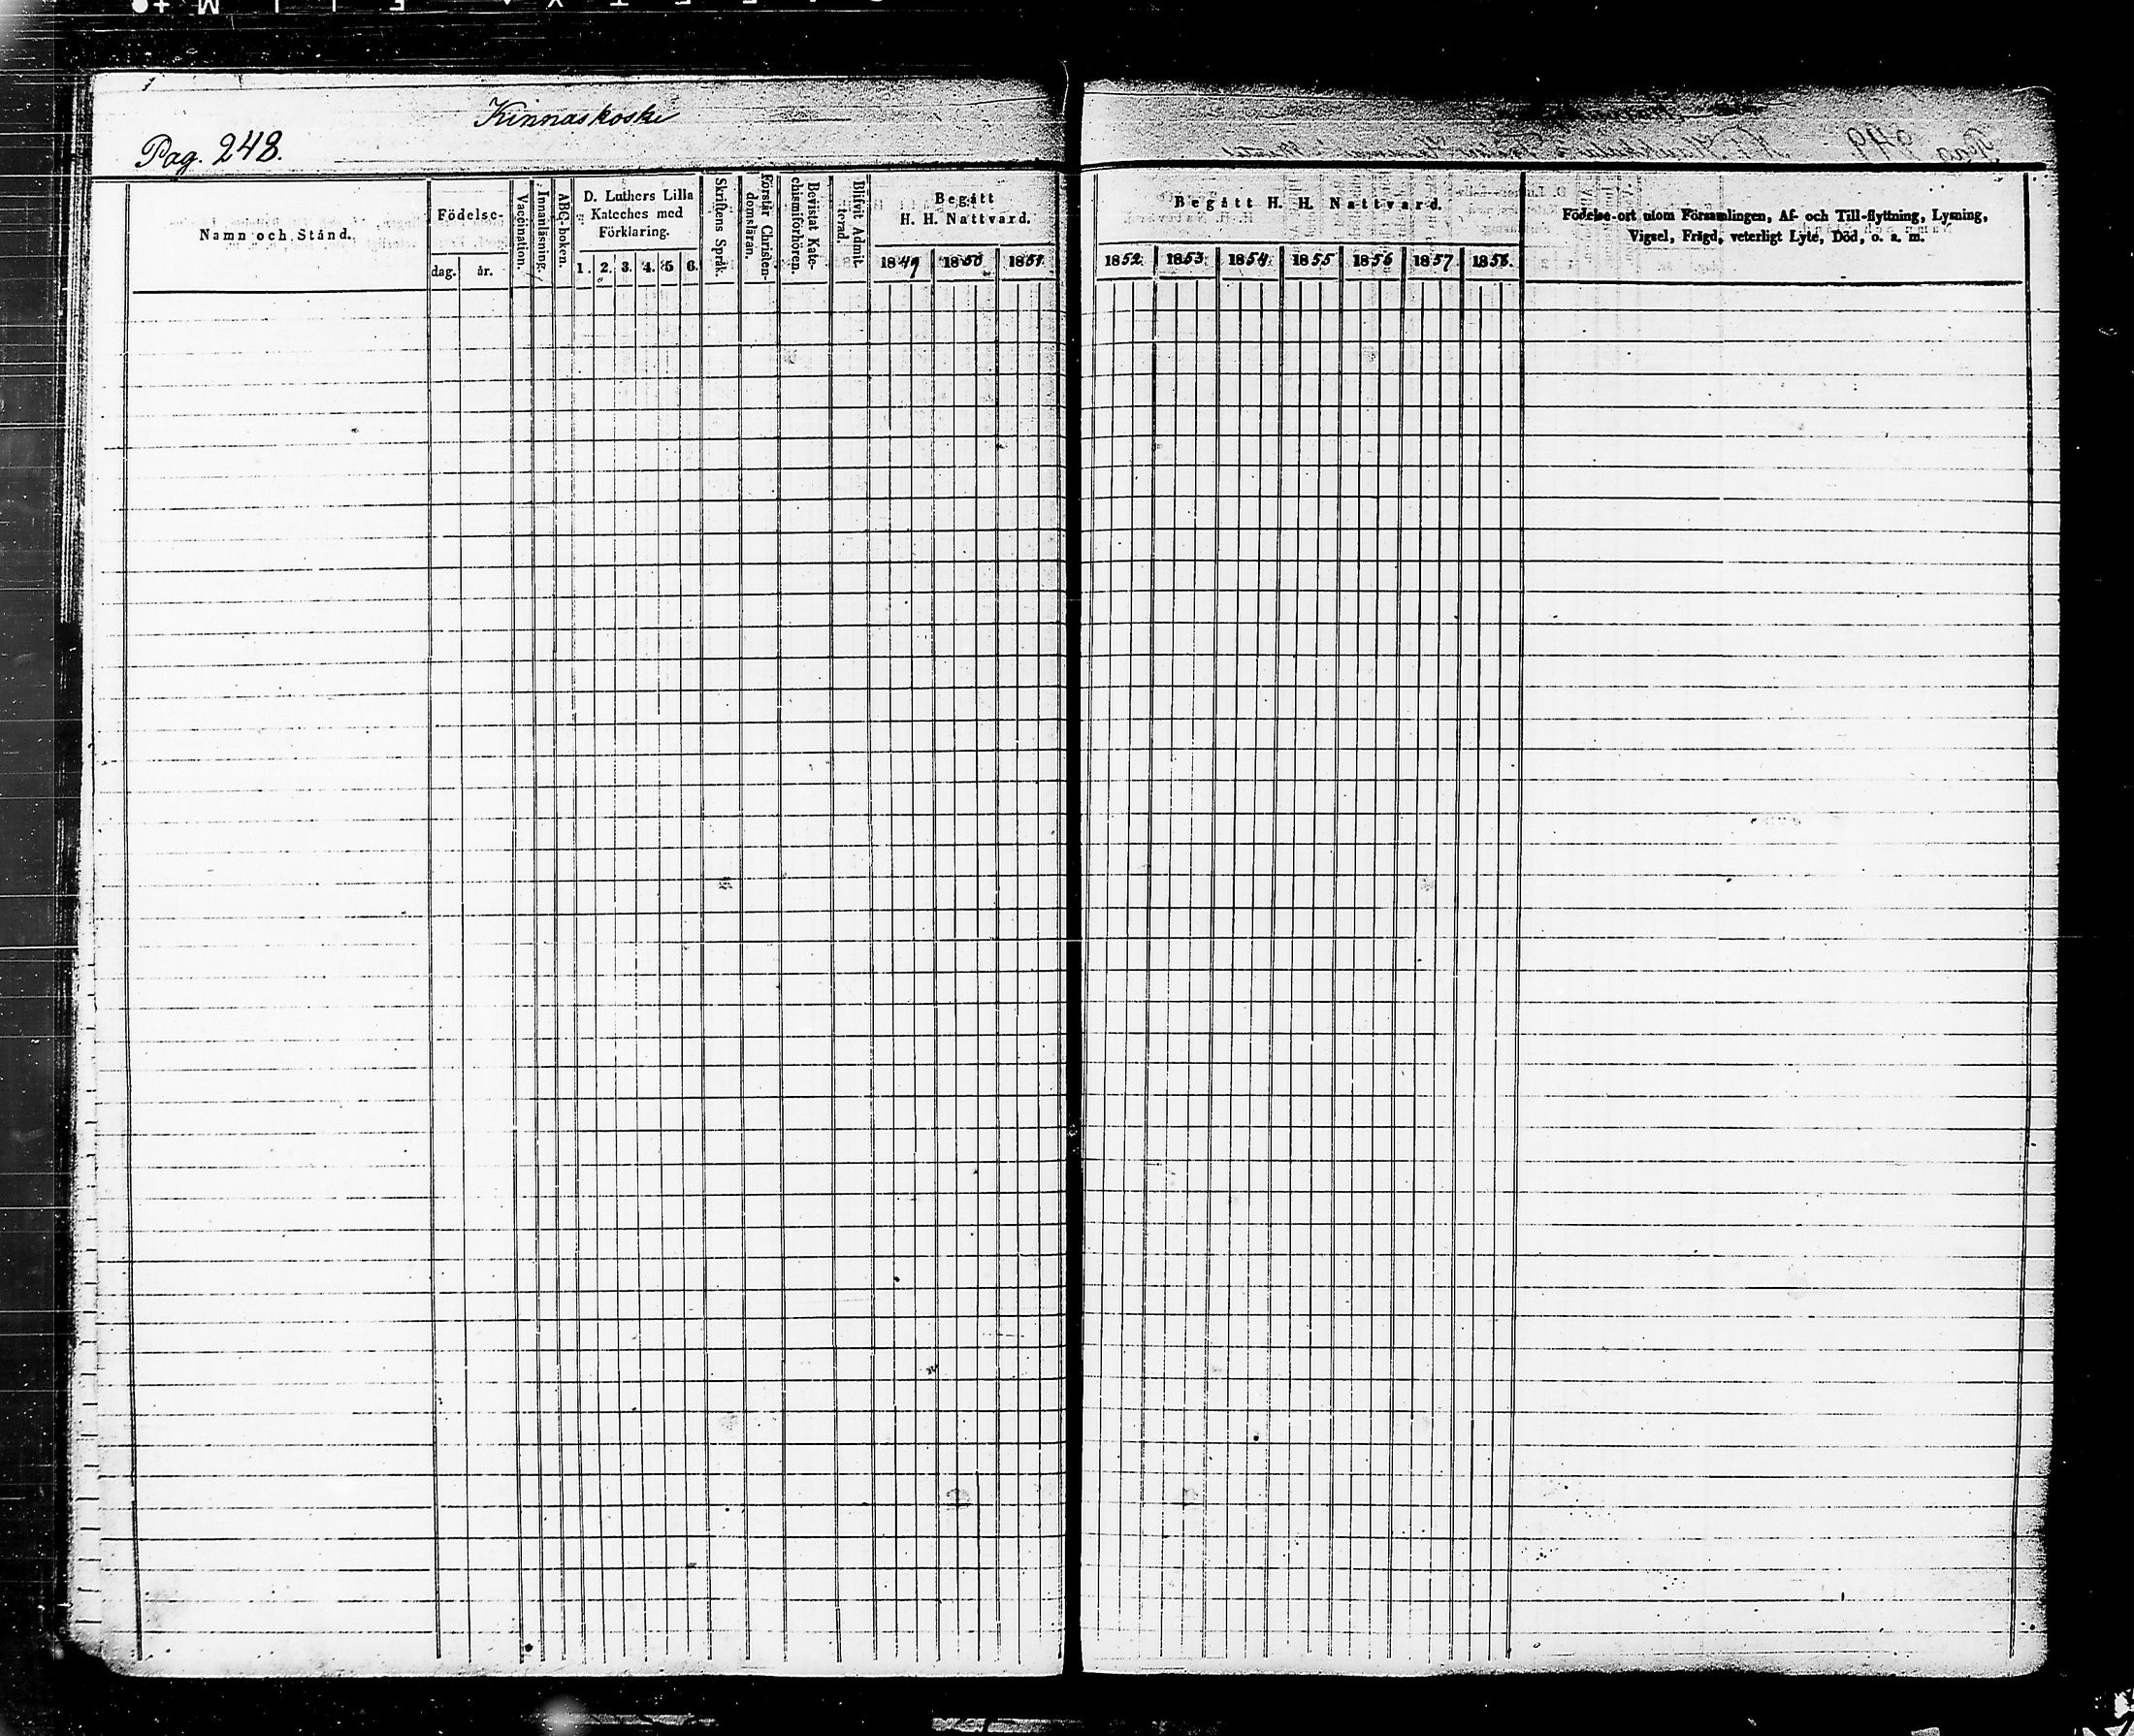 Kinnaskoski
Pag. 248.
Namn och Stånd.
Födelse-
dag. år.
Vaccination.
Innanläsning.
ABC-boken.
D. Luthers Lilla
Kateches med
Förklaring.
1. 2. 3. 4. 5 6.
Skriftens Språk.
Förstår Christen-
domsläran.
Bevistat Kate-
chismiförhören.
Blifvit Admit-
terad.
Begått
H. H. Nattvard.
1849 1850 1851.
Begått H. H. Nattvard.
1852. 1853. 1854. 1855 1856 1857 1858.
Födelse-ort utom Församlingen, Af- och Till-flyttning, Lysning,
Vigsel, Frägd, veterligt Lyte, Död, o. s. m.